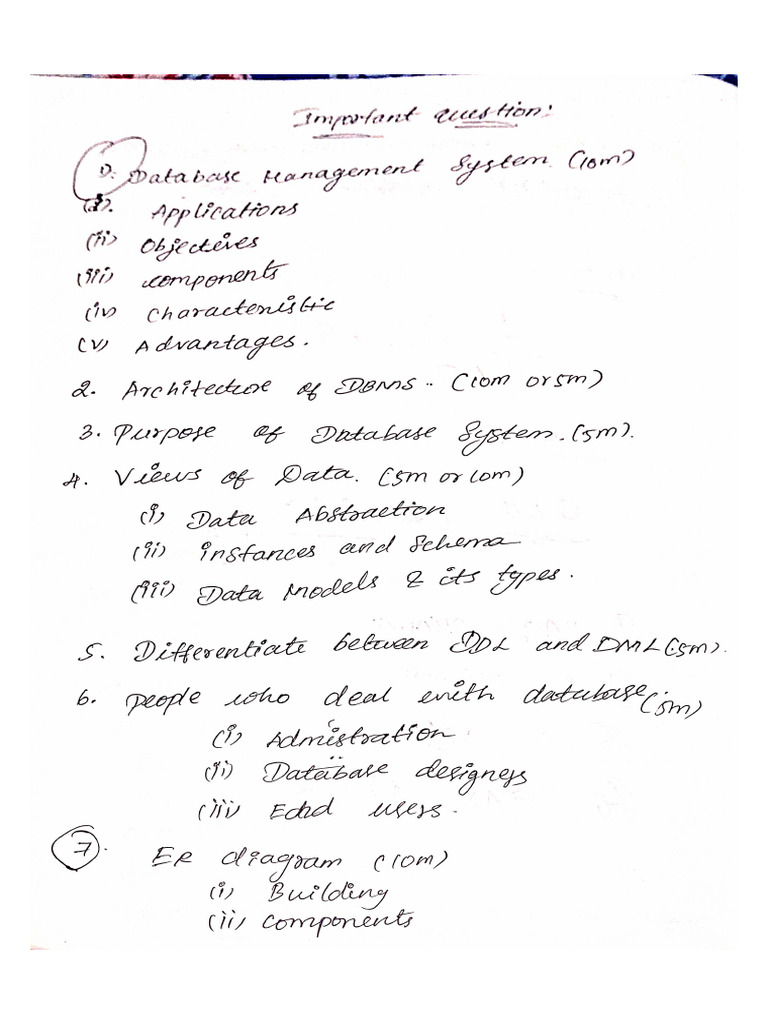 Important Question:
1). Database Management System (10m)
(i). Applications
(ii) Objectives
(iii) components
(iv) characteristic
(v) Advantages.
2. Architecture of DBMS.. (10m or 5m)
3. Purpose of Database System. (5m).
4. Views of Data. (5m or 10m)
(i) Data Abstraction
(ii) instances and Schema
(iii) Data Models & its types.
5. Differentiate between DDL and DML (5m).
6. people who deal with database (5m)
(i) Admistration
(ii) Database designers
(iii) End users.
7. ER diagram (10m)
(i) Building
(ii) components